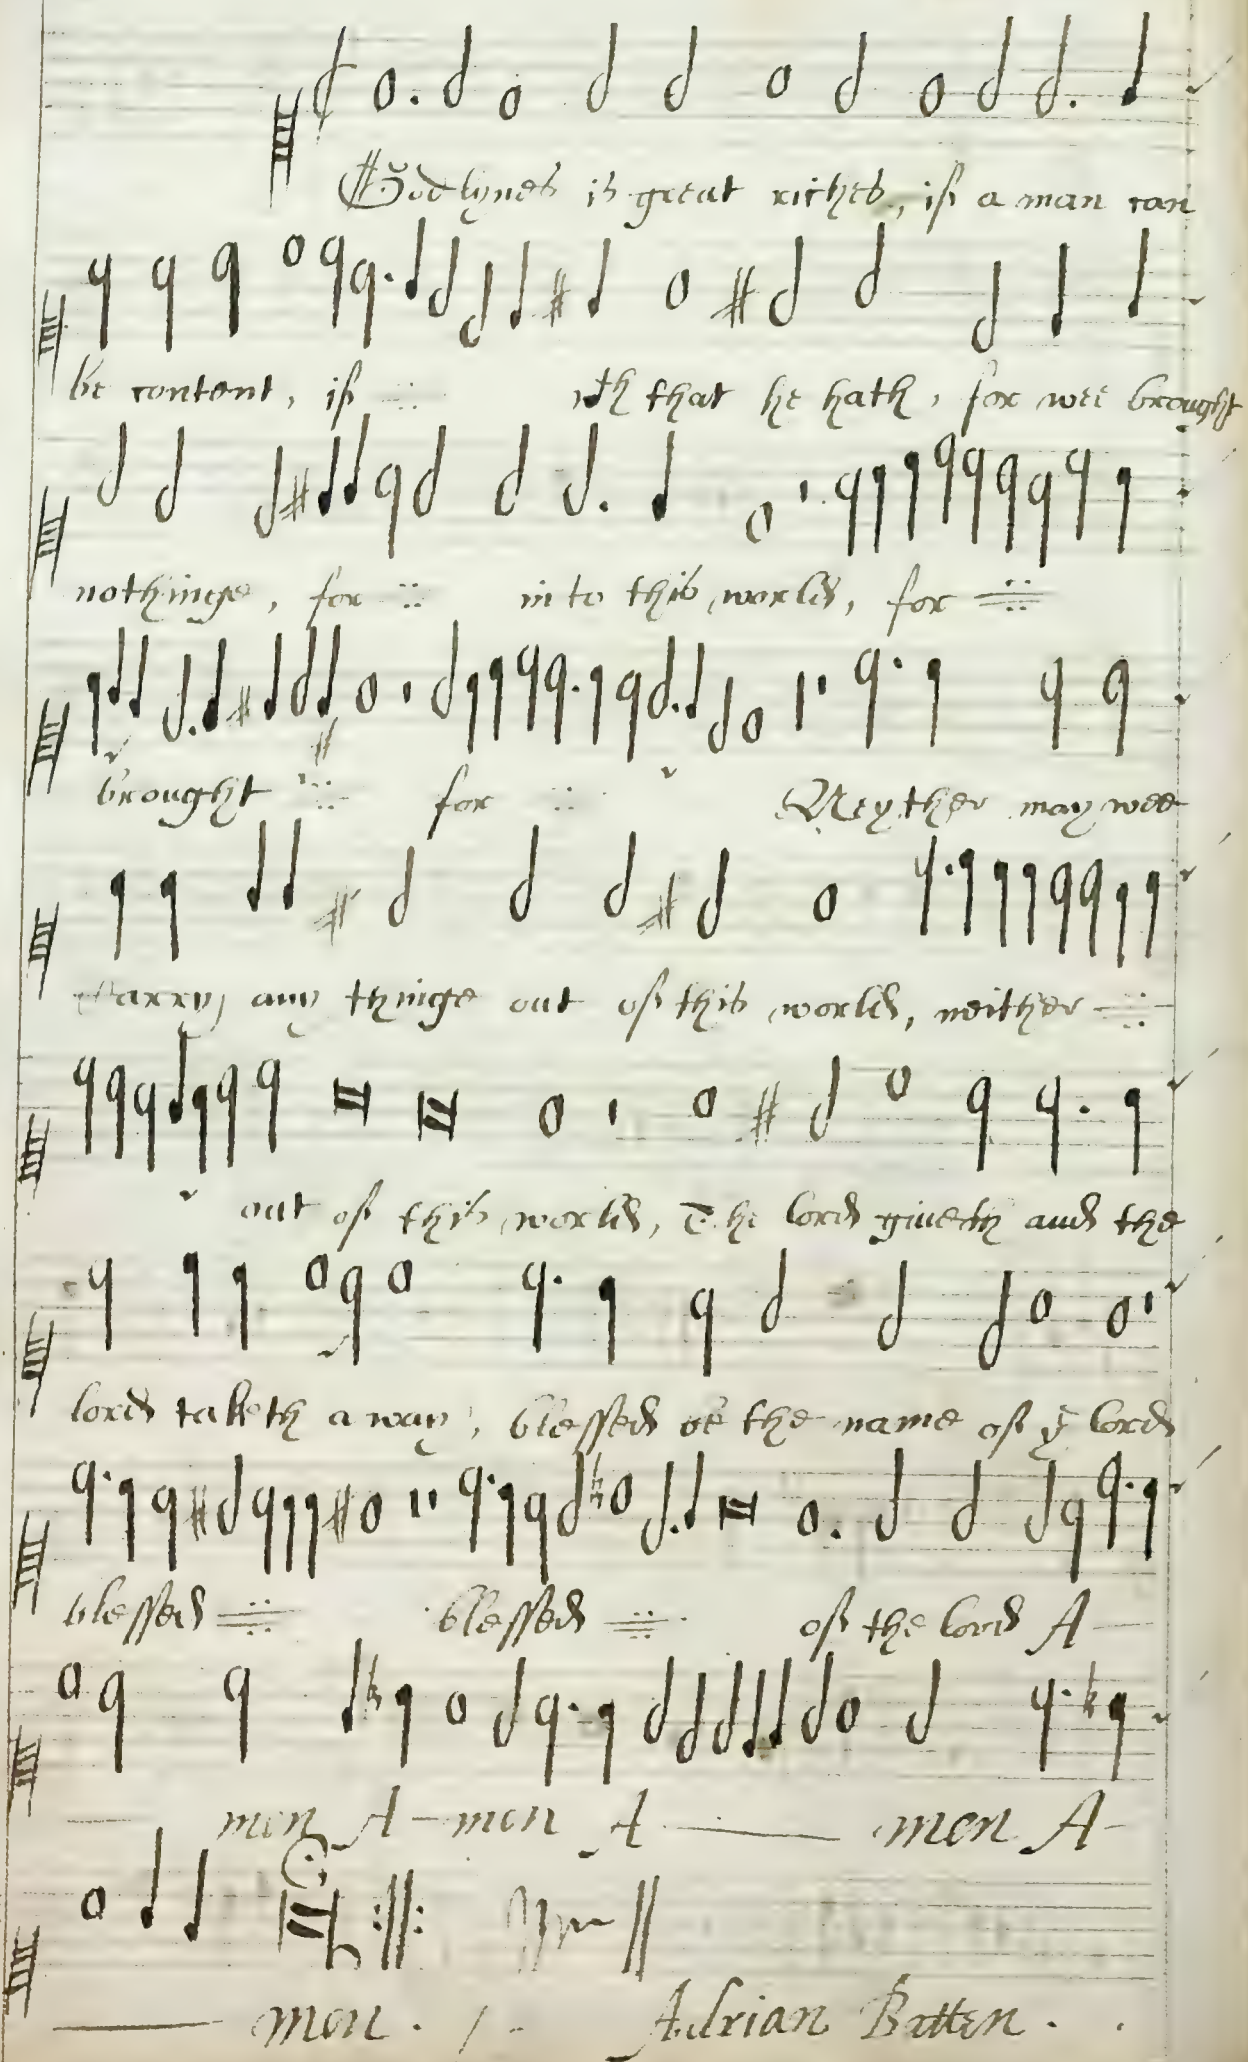 Godlynes is great riches, if a man can
be content, if wth that he hath, for wee brought
nothinge, for into this world, for
brought for Neyther may wee
Carry any thinge out of this world, neither
out of this world, The lord giueth and the
lord taketh away, blessed be the name of ye lord
blessed blessed of the lord A
men A-men A men A-
men.
Adrian Batten.